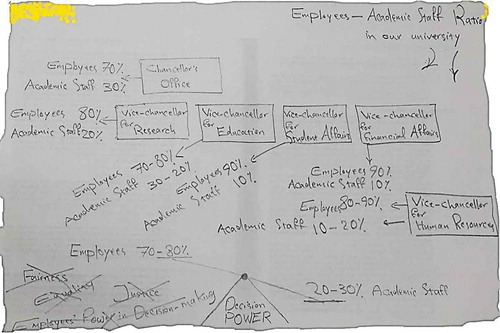 Employees — Academic Staff Ratio
in our university
Employees 70%
Academic Staff 30%
Chancellor's
Office
Employees 80%
Academic Staff 20%
Vice-chancellor
for Research
Vice-chancellor
for Education
Vice-chancellor
for
Student Affairs
Vice-chancellor
for
Financial Affairs
Employees 70-80%
Academic Staff 30-20%
Employees 90%
Academic Staff 10%
Employees 90%
Academic Staff 10%
Employees 80-90%
Academic Staff 10-20%
Vice-chancellor
for
Human Resources
Employees 70-80%
Fairness
Equality
Justice
Employees' Power in Decision-making
Decision
POWER
20-30% Academic Staff